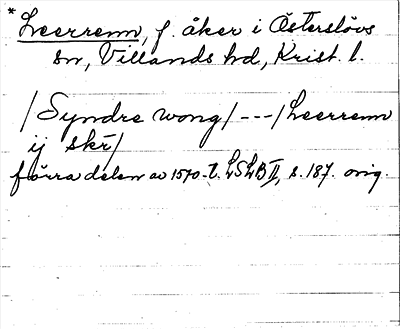 * Leerrenn, f. åker i Österslövs
sn, Villands hd, Krist. l.
/Syndre wong/ --- / Leerrenn
ij skr/
förra delen av 1570-t. LSLB II, s. 187. orig.